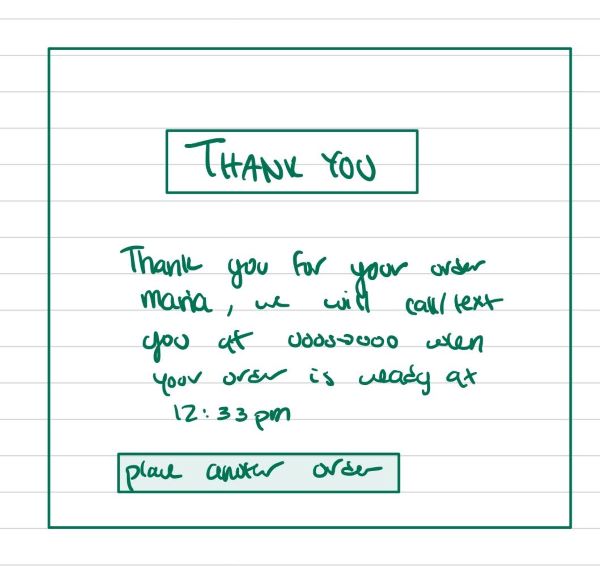 THANK YOU
Thank you for your order
maria, we will call/text
you at when
your order is ready at
12:33pm
place another order